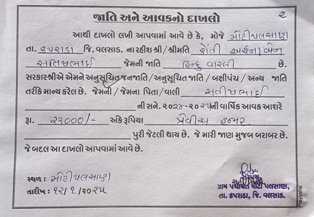 જાતિ અને આવકનો દાખલો
૨
આથી દાખલો લખી આપવામાં આવે છે કે, મોજે મોટીપલસાણ
તા. કપરાડા જિ. વલસાડ. ના રહીશ શ્રી/શ્રીમતિ
જેમની જાતિ હિન્દુ વારલી છે.
સરકારશ્રીએ એમને અનુસૂચિત જનજાતિ / અનુસૂચિત જાતિ / બક્ષીપંચ / અન્ય જાતિ
તરીકે માન્ય કરેલ છે. જેમની / જેમના પિતા/વાલી
ની સને. ૨૦૨૪-૨૦૨૫ની વાર્ષિક આવક આશરે
રૂા. ૨૩૦૦૦/- અંકે રૂપિયા ત્રેવીસ હજાર
પુરી જેટલી થાય છે. જે મારી જાણ મુજબ બરાબર છે.
જે બદલ આ દાખલો આપવામાં આવે છે.
સ્થળ : મોટીપલસાણ
તારીખ : ૧૨/૧/૨૦૨૫
ગ્રામ પંચાયત મોટી પલસાણ,
તા. કપરાડા, જિ. વલસાડ.